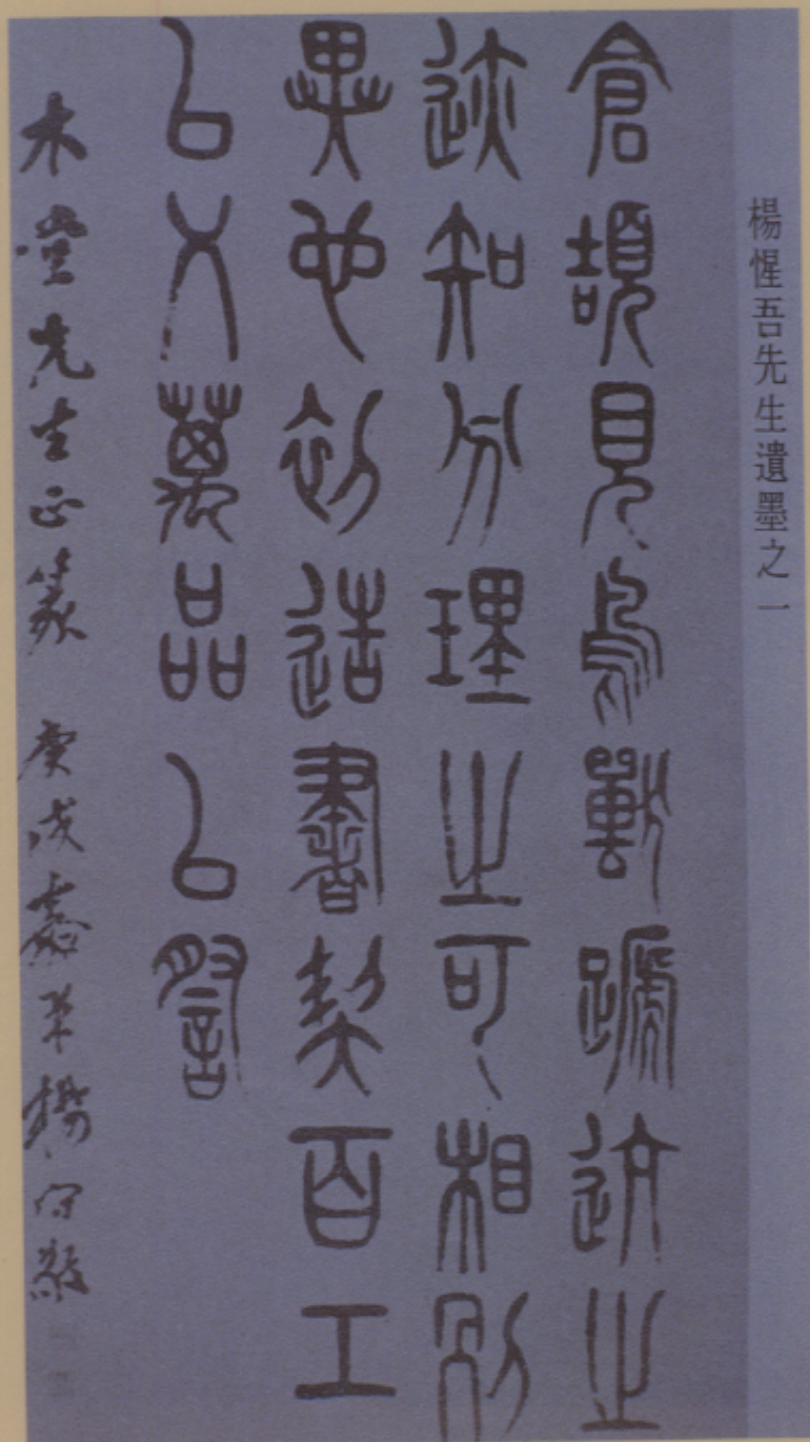 楊惺吾先生遺墨之一
倉頡見鳥獸蹏迒之
迹知分理之可相別
異也初造書契百工
以乂萬品以詧
木堂先生正篆 庚戌嘉平楊守敬